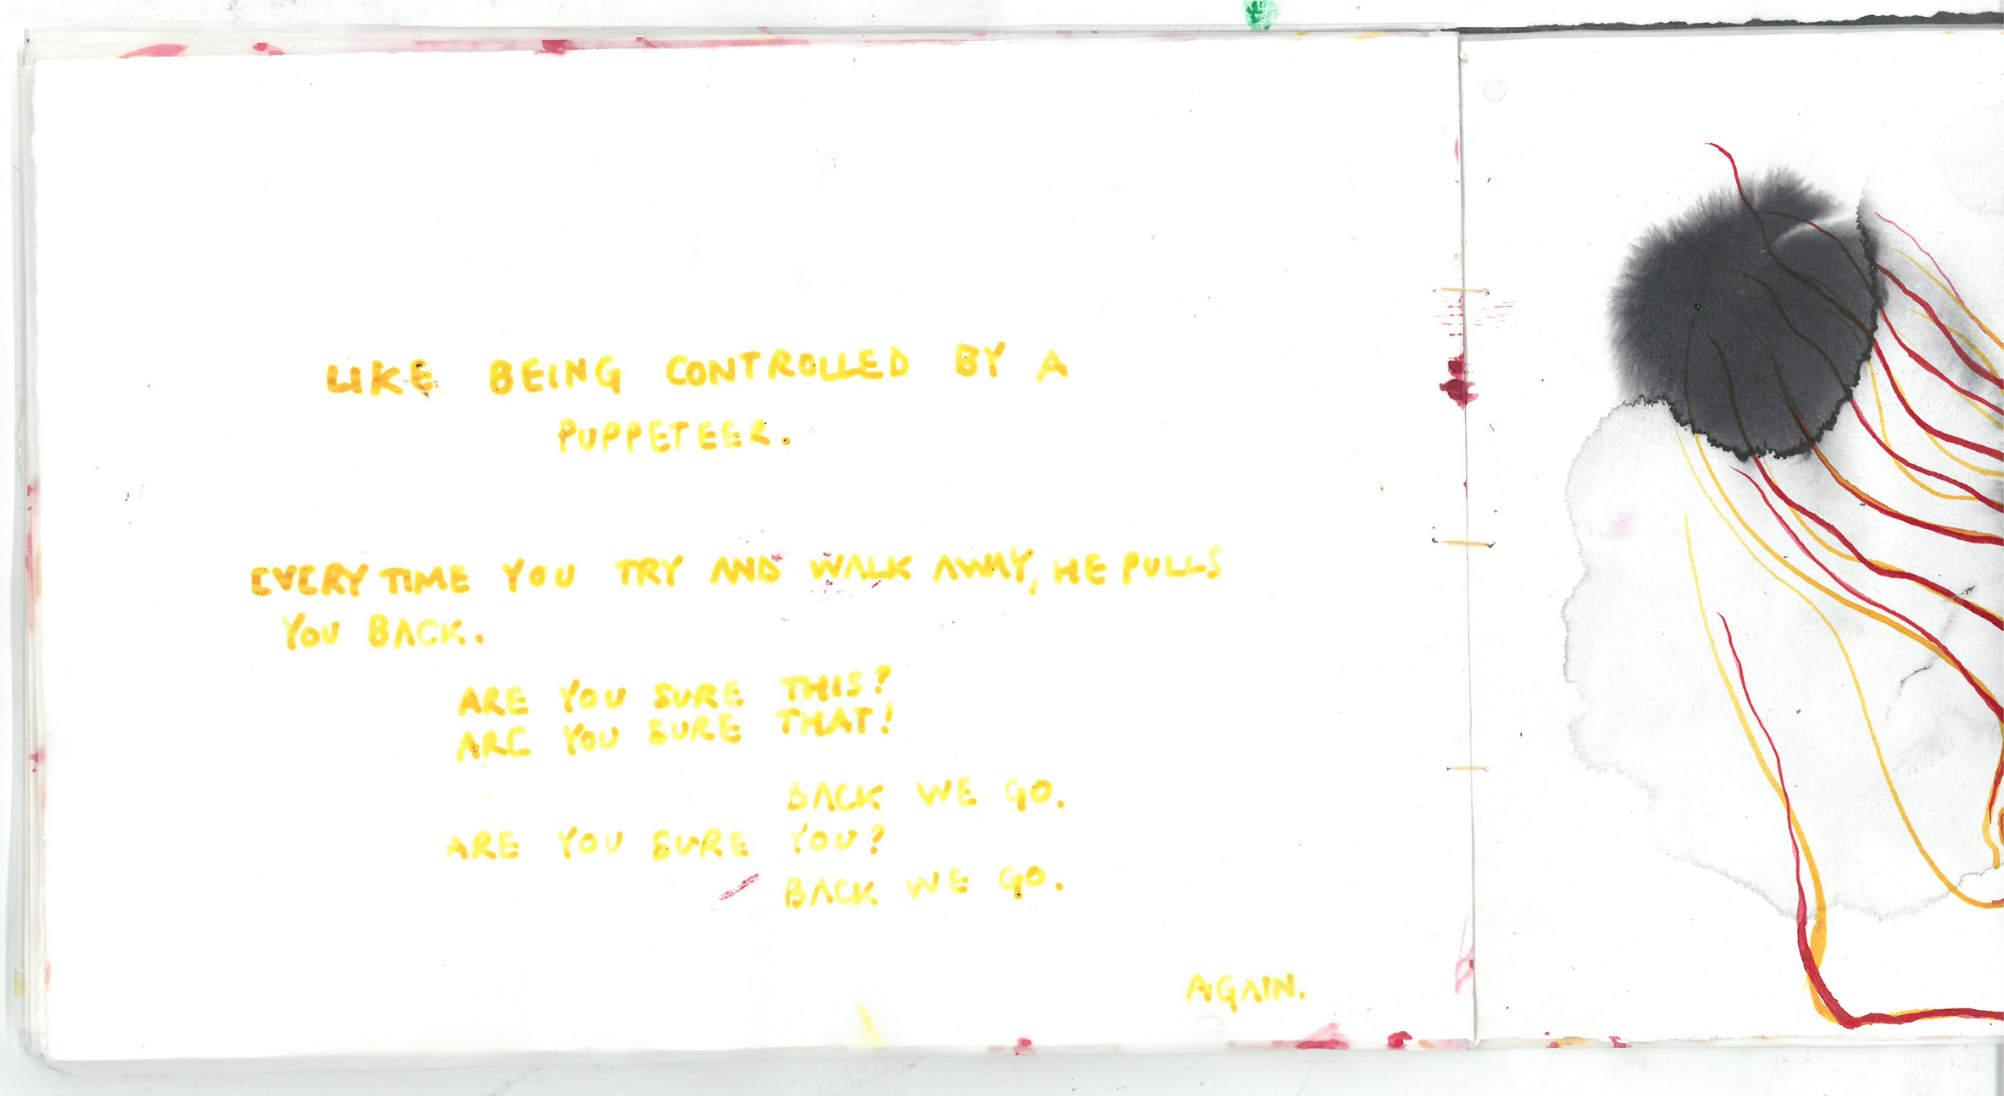 LIKE BEING CONTROLLED BY A
PUPPETEER.
EVERY TIME YOU TRY AND WALK AWAY, HE PULLS
YOU BACK.
ARE YOU SURE THIS?
ARE YOU SURE THAT!
BACK WE GO.
ARE YOU SURE YOU?
BACK WE GO.
AGAIN.